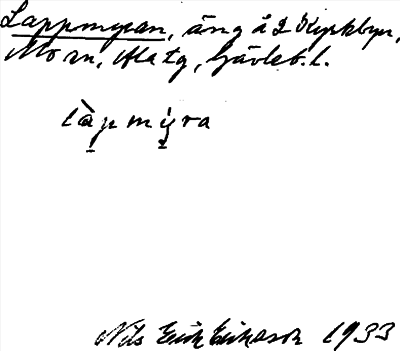 Lappmyran, äng å 2 Kyrkbyn,
Mo sn, Ala tg, Gävleb. l.
làpmy̍ra
Nils Erik Eriksson 1933